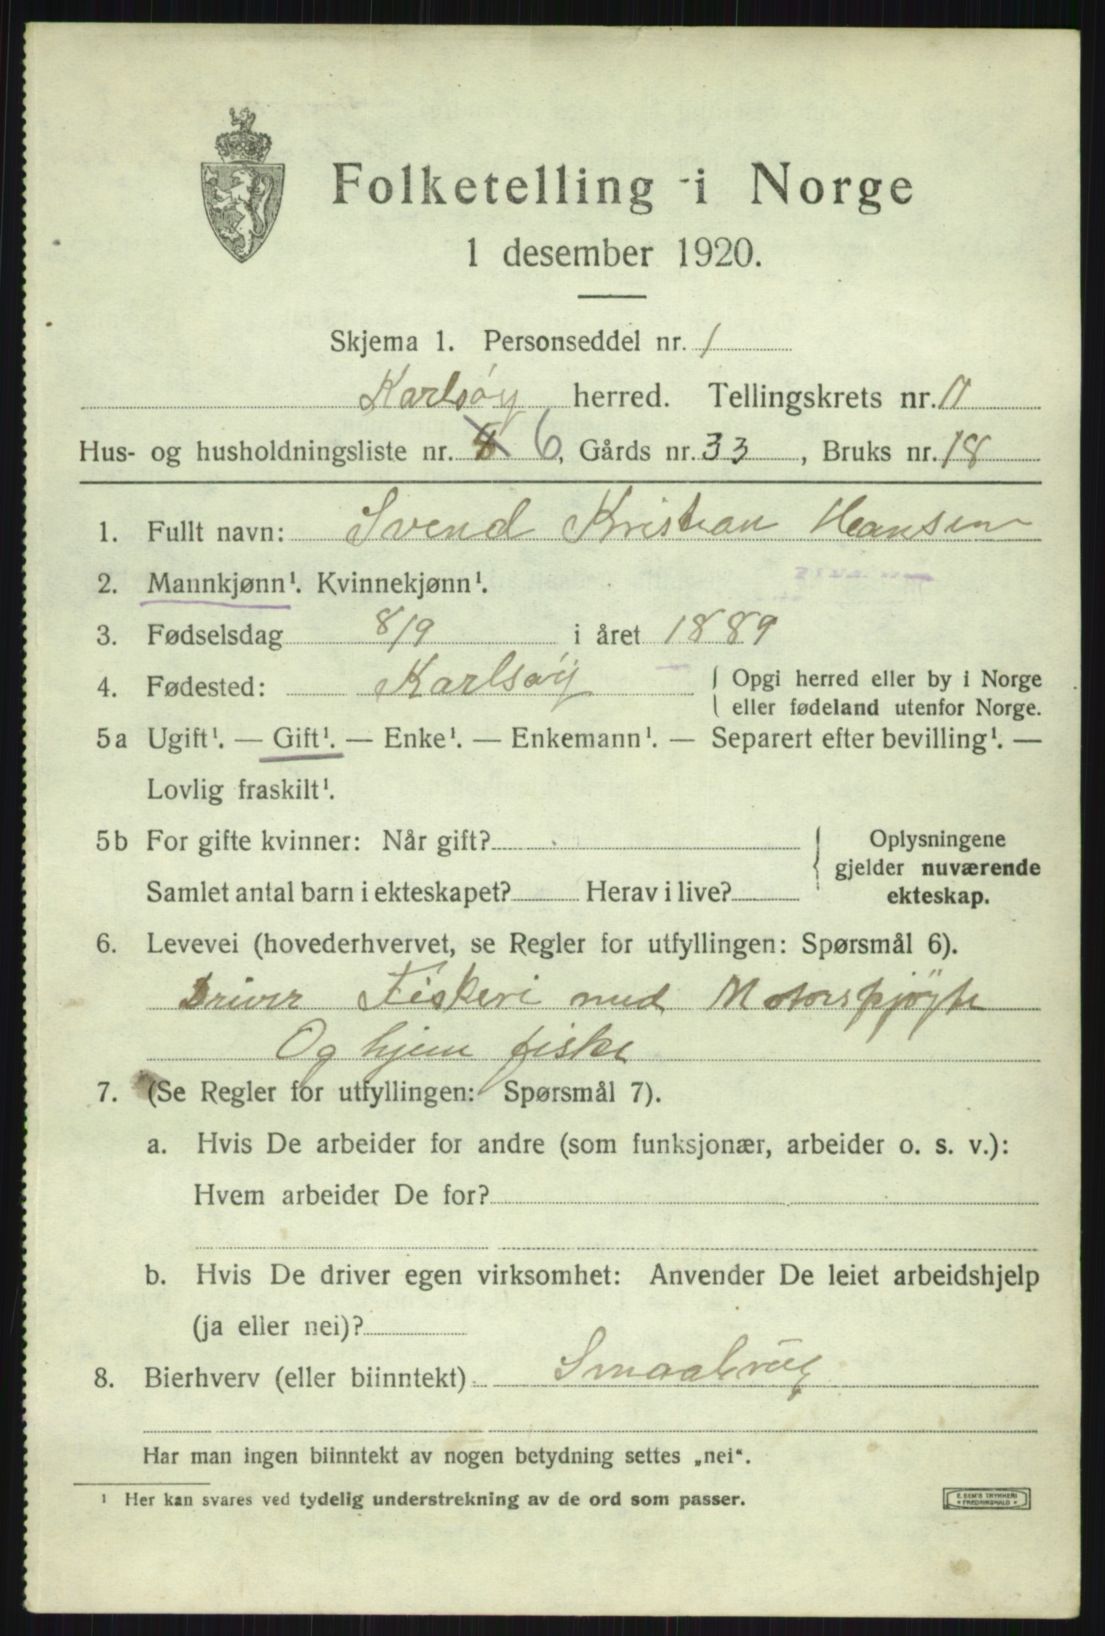 Folketelling i Norge
1 desember 1920.
Skjema 1. Personseddel nr. 1
Karlsøy herred. Tellingskrets nr. 11
Hus- og husholdningsliste nr. 6, Gårds nr. 33, Bruks nr. 18
1. Fullt navn: Svend Kristian Hansen
2. Mannkjønn¹. Kvinnekjønn¹.
3. Fødselsdag 8/9 i året 1889
4. Fødested: Karlsøy { Opgi herred eller by i Norge
eller fødeland utenfor Norge.
5a Ugift¹. — Gift¹. — Enke¹. — Enkemann¹. — Separert efter bevilling¹. —
Lovlig fraskilt¹.
5b For gifte kvinner: Når gift?
Samlet antal barn i ekteskapet? Herav i live?
{ Oplysningene
gjelder nuværende
ekteskap.
6. Levevei (hovederhvervet, se Regler for utfyllingen: Spørsmål 6).
Driver Fiskeri med Motorspjøyte
Og hjem fiske
7. (Se Regler for utfyllingen: Spørsmål 7).
a. Hvis De arbeider for andre (som funksjonær, arbeider o. s. v.):
Hvem arbeider De for?
b. Hvis De driver egen virksomhet: Anvender De leiet arbeidshjelp
(ja eller nei)?
8. Bierhverv (eller biinntekt) Smaabrug
Har man ingen biinntekt av nogen betydning settes „nei“.
¹ Her kan svares ved tydelig understrekning av de ord som passer.
E. SEM'S TRYKKERI
FREDRIKSHALD